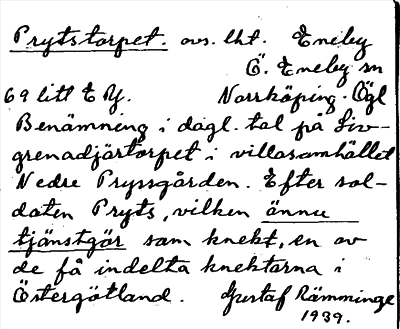 Prytstorpet. avs. lht. Eneby
Ö. Eneby sn
69 litt E Y. Norrköping. Ögl
Benämning i dagl. tal på Liv-
grenadjärtorpet i villasamhället
Nedre Pryssgården. Efter sol-
daten Pryts, vilken ännu
tjänstgör som knekt, en av
de få indelta knektarna i
Östergötland. Gustaf Rämminge
1939.